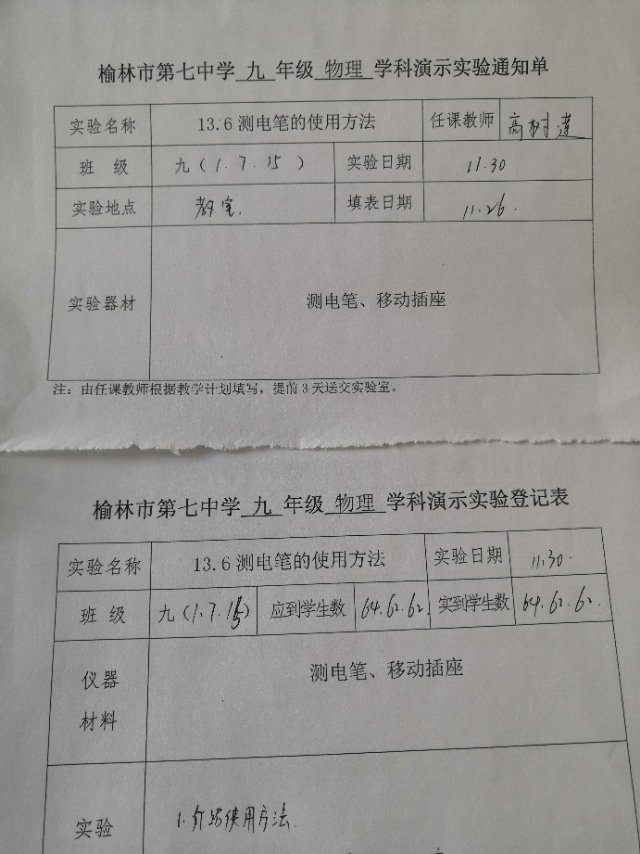 榆林市第七中学 九 年级 物理 学科演示实验通知单
实验名称 13.6 测电笔的使用方法 任课教师 高树
班 级 九（1.7.15） 实验日期 11.30
实验地点 教室. 填表日期 11.26.
实验器材 测电笔、移动插座
注：由任课教师根据教学计划填写，提前 3 天送交实验室。
榆林市第七中学 九 年级 物理 学科演示实验登记表
实验名称 13.6 测电笔的使用方法 实验日期 11.30.
班 级 九（1.7.15） 应到学生数 64.62.62. 实到学生数 64.62.62.
仪器
材料 测电笔、移动插座
实验 1.介绍使用方法.